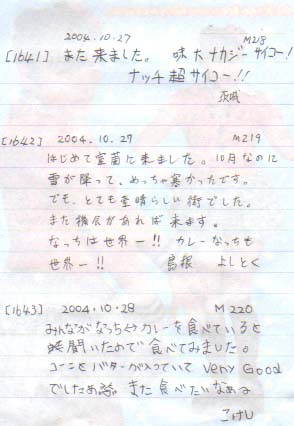 2004.10.27 M218
[1641] また来ました。 味大ナカジーサイコー!
ナッチ超サイコー!!
茨城
[1642] 2004.10.27 M219
はじめて室蘭に来ました。10月なのに
雪が降って、めっちゃ寒かったです。
でも、とても素晴らしい街でした。
また機会があれば来ます。
なっちは世界一!! カレーなっちも
世界一!! 島根 よしとく
[1643] 2004.10.28 M220
みんながなっち カレーを食べていると
聞いたので食べてみました。
コーンとバターが入っていて Very Good
でした また食べたいなぁ
こけし